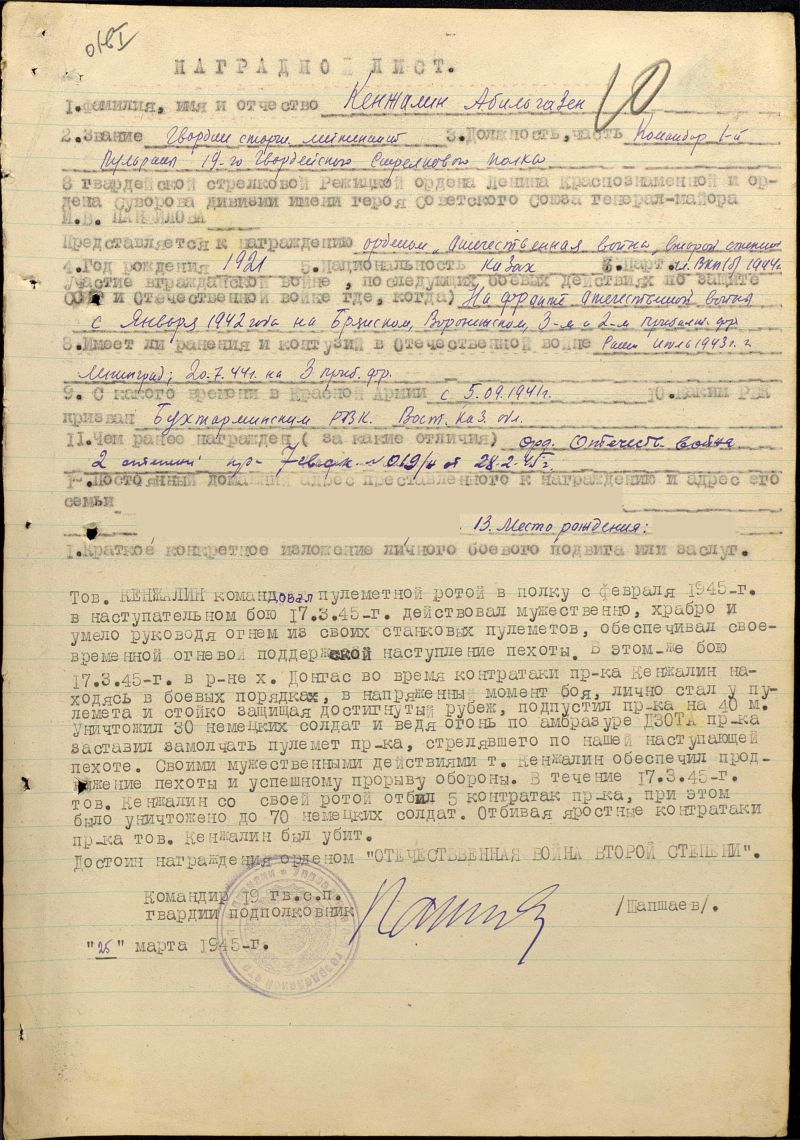 НАГРАДНОЙ ЛИСТ.
10
1.Фамилия, имя и отчество Кенжалин Абильгазен
2.Звание Гвардии старш. лейтенант 3.Должность, часть Командир 1-й
Пульроты 19-го Гвардейского Стрелкового полка
8 гвардейской стрелковой Режицкой ордена Ленина Краснознаменной и ор-
дена Суворова дивизии имени героя Советского Союза генерал-майора
И.В. ПАНФИЛОВА
Представляется к награждению орденом „Отечественная война, второй степени
4.Год рождения 1921 5.Национальность казах 6.Парт. чл. ВКП(б) 1944г
Участие в гражданской войне , последующих боевых действиях по защите
СССР и Отечественной войне где, когда) На фронте отечественной войны
с Января 1942 года на Брянском, Воронежском, 3-м и 2-м прибалт. фр.
8.Имеет ли ранения и контузий в Отечественной войне Ранен 1943г. г.
Ленинград; 20.7.44г. на 3 приб. фр.
9. С какого времени в Красной Армии с 5.09.1941г. 10.Каким РВК
призван Бухтарминским РВК. Вост. Каз. обл.
11.Чем ранее награжден( за какие отличия) орд. Отечеств. война
2 степени пр. 7 гв.ск. №019/н от 28.2.45г.
Постоянный домашний адрес преставленного к награждению и адрес его
семьи
13. Место рождения:
1.Краткое конкретное изложение личного боевого подвига или заслуг.
Тов. КЕНЖАЛИН командовал пулеметной ротой в полку с февраля 1945-г.
в наступательном бою 17.3.45-г. действовал мужественно, храбро и
умело руководя огнем из своих станковых пулеметов, обеспечивал свое-
временной огневой поддержской наступление пехоты. В этом-же бою
17.3.45-г. в р-не х. Донгас во время контратаки пр-ка Кенжалин на-
ходясь в боевых порядках, в напряженный момент боя, лично стал у пу-
лемета и стойко защищая достигнутый рубеж, подпустил пр-ка на 40 м.
Уничтожил 30 немецких солдат и ведя огонь по амбразуре ДЗОТА пр-ка
заставил замолчать пулемет пр-ка, стрелявшего по нашей наступающей
пехоте. Своими мужественными действиями т. Кенжалин обеспечил прод-
вижение пехоты и успешному прорыву обороны. В течение 17.3.45-г.
тов. Кенжалин со своей ротой отбил 5 контратак пр-ка, при этом
было уничтожено до 70 немецких солдат. Отбивая яростные контратаки
пр-ка тов. Кенжалин был убит.
Достоин награждения орденом "ОТЕЧЕСТВВЕННАЯ ВОЙНА ВТОРОЙ СТЕПЕНИ".
Командир 19 гв.с.п.
гвардии подполковник /Шапшаев/.
"25" марта 1945-г.